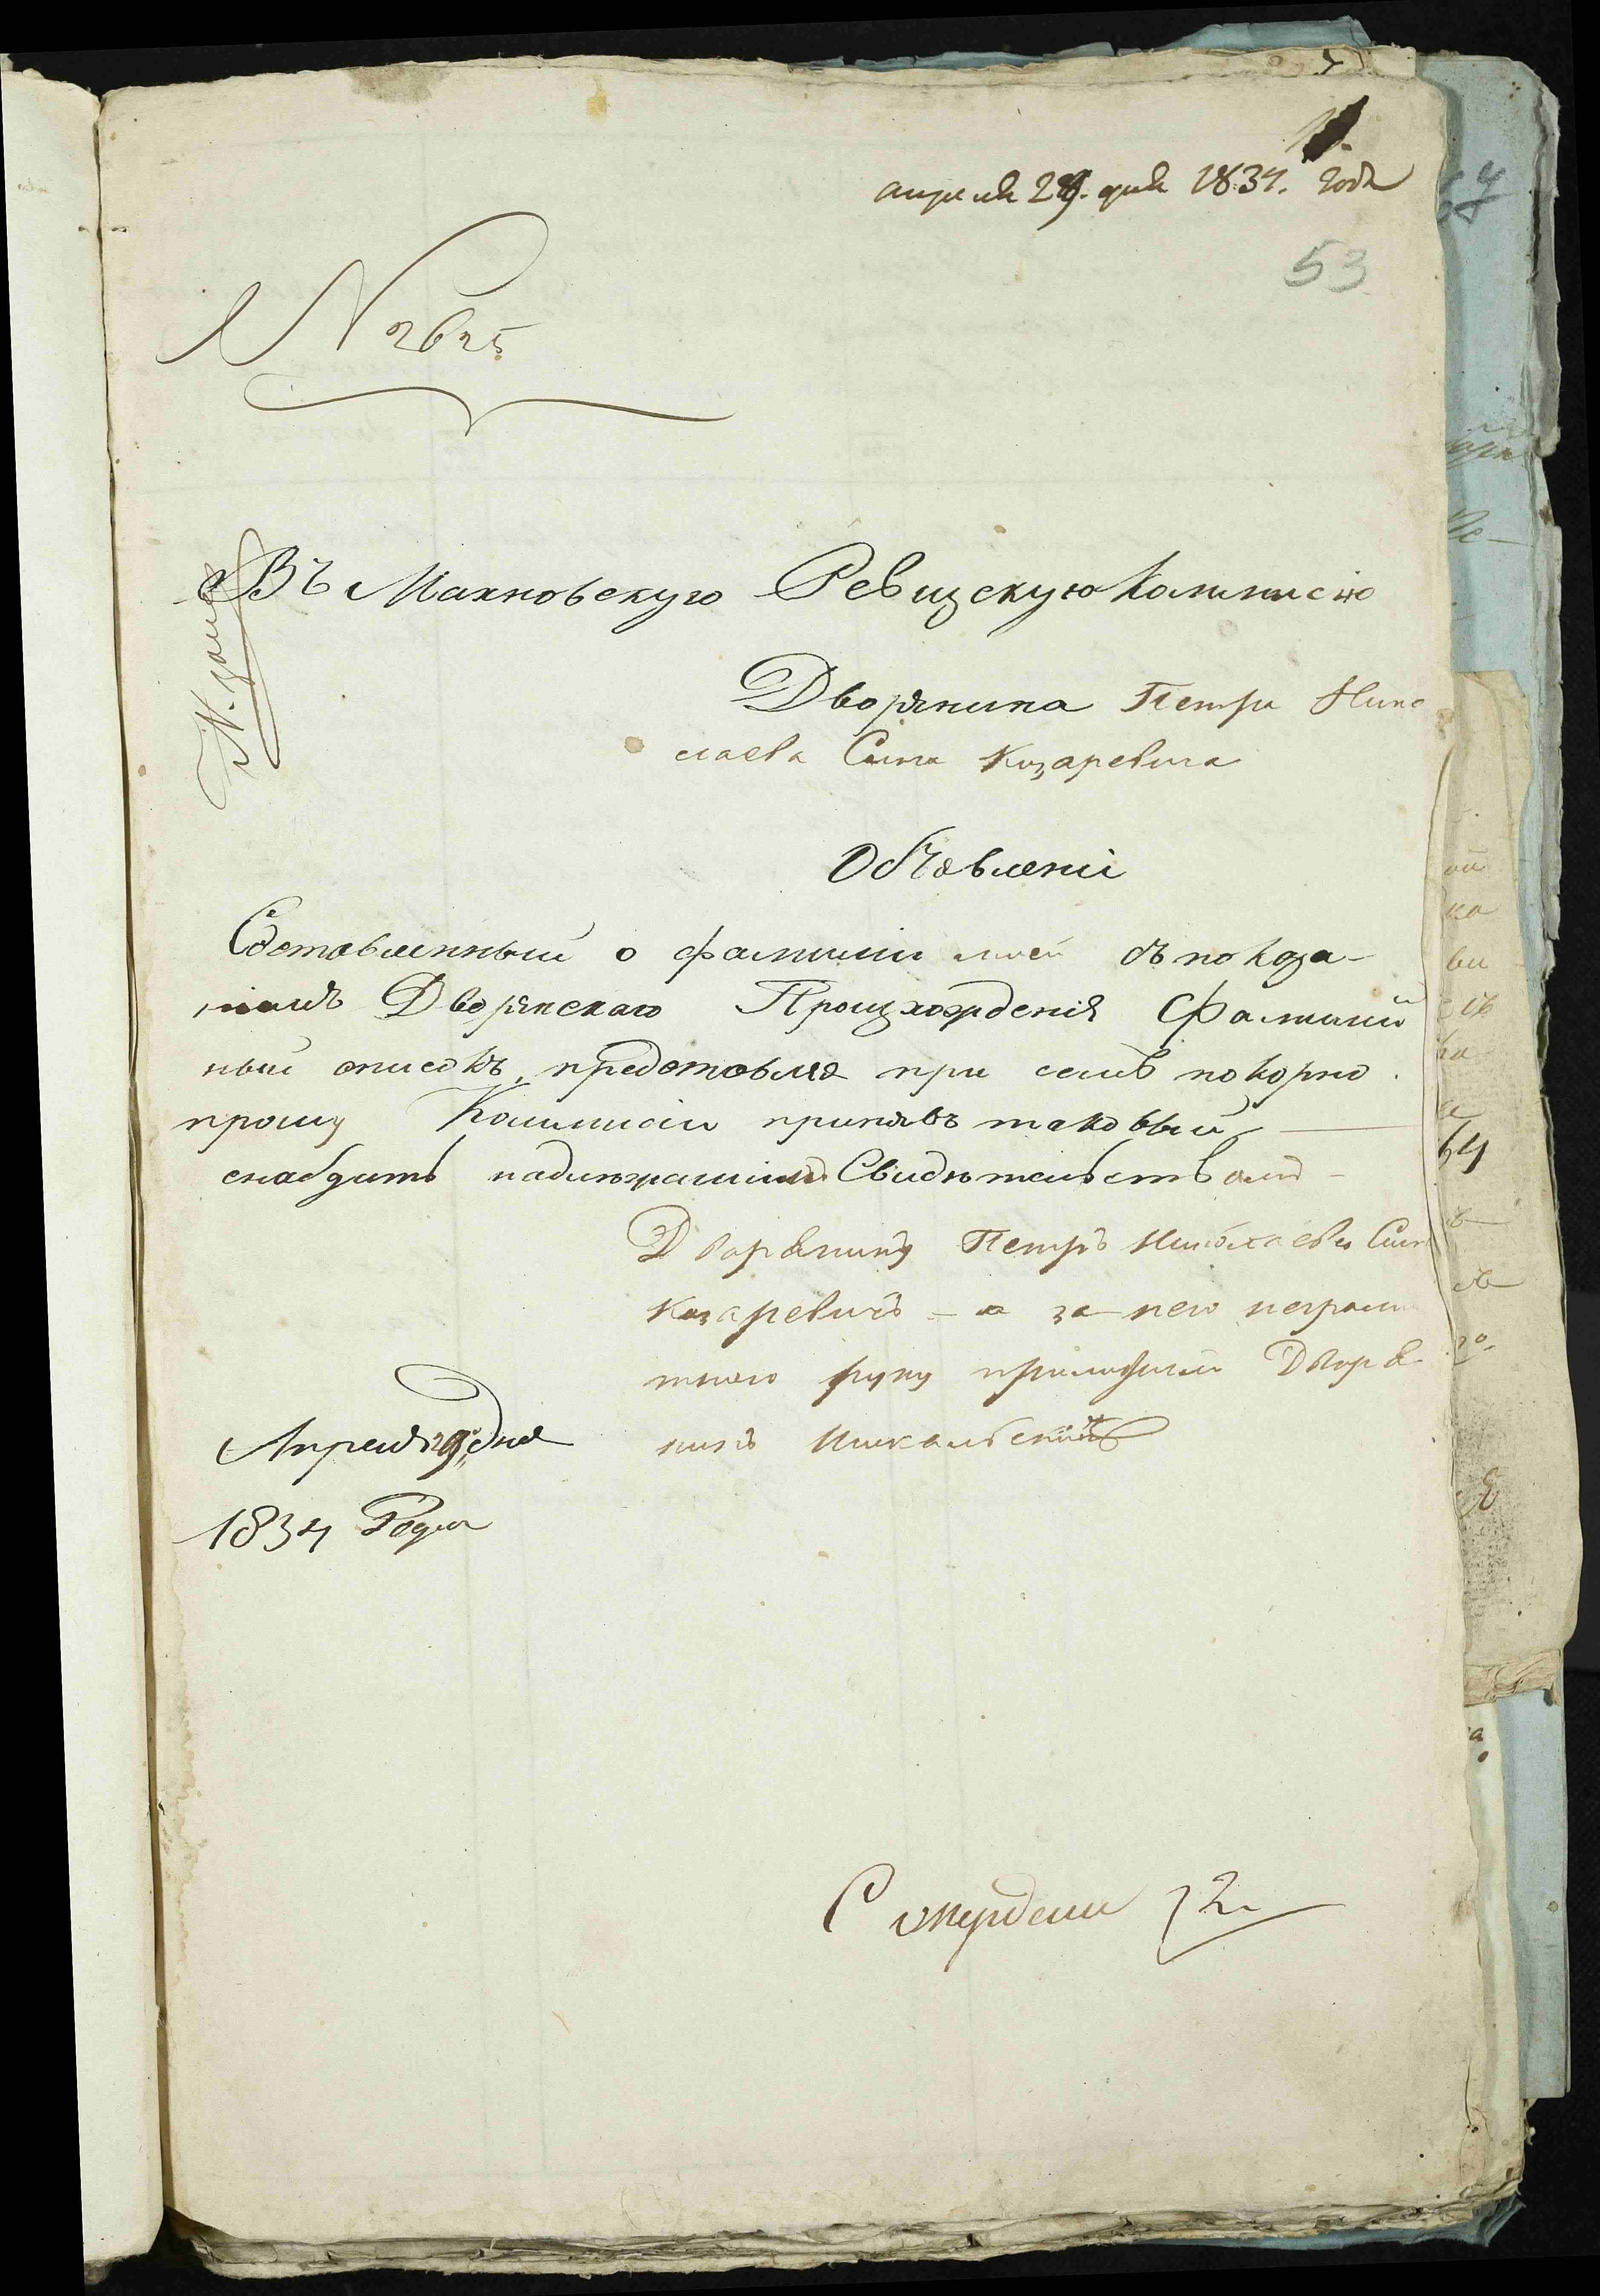 апреля 29. дня 1834. года
53
N 2625
Въ Махновскую Ревизскую Коммисію
Дворянина Петра Нико
лаева Сына Козаревича
Объявлені
Составленный о фамиліи моей съ показа-
ніемъ Дворянскаго Произхожденія Фамилій
ный списокъ, представляя при семъ покорно
прошу Коммисіи принявъ таковый
снабдить надлежащимъ Свидѣтельствомъ
Дворянинъ Петръ Николаевъ Сынъ
Козаревичъ - а за него неграмо
тного руку приложилъ Дворя
нинъ
Апреля 29 дня
1834 Года